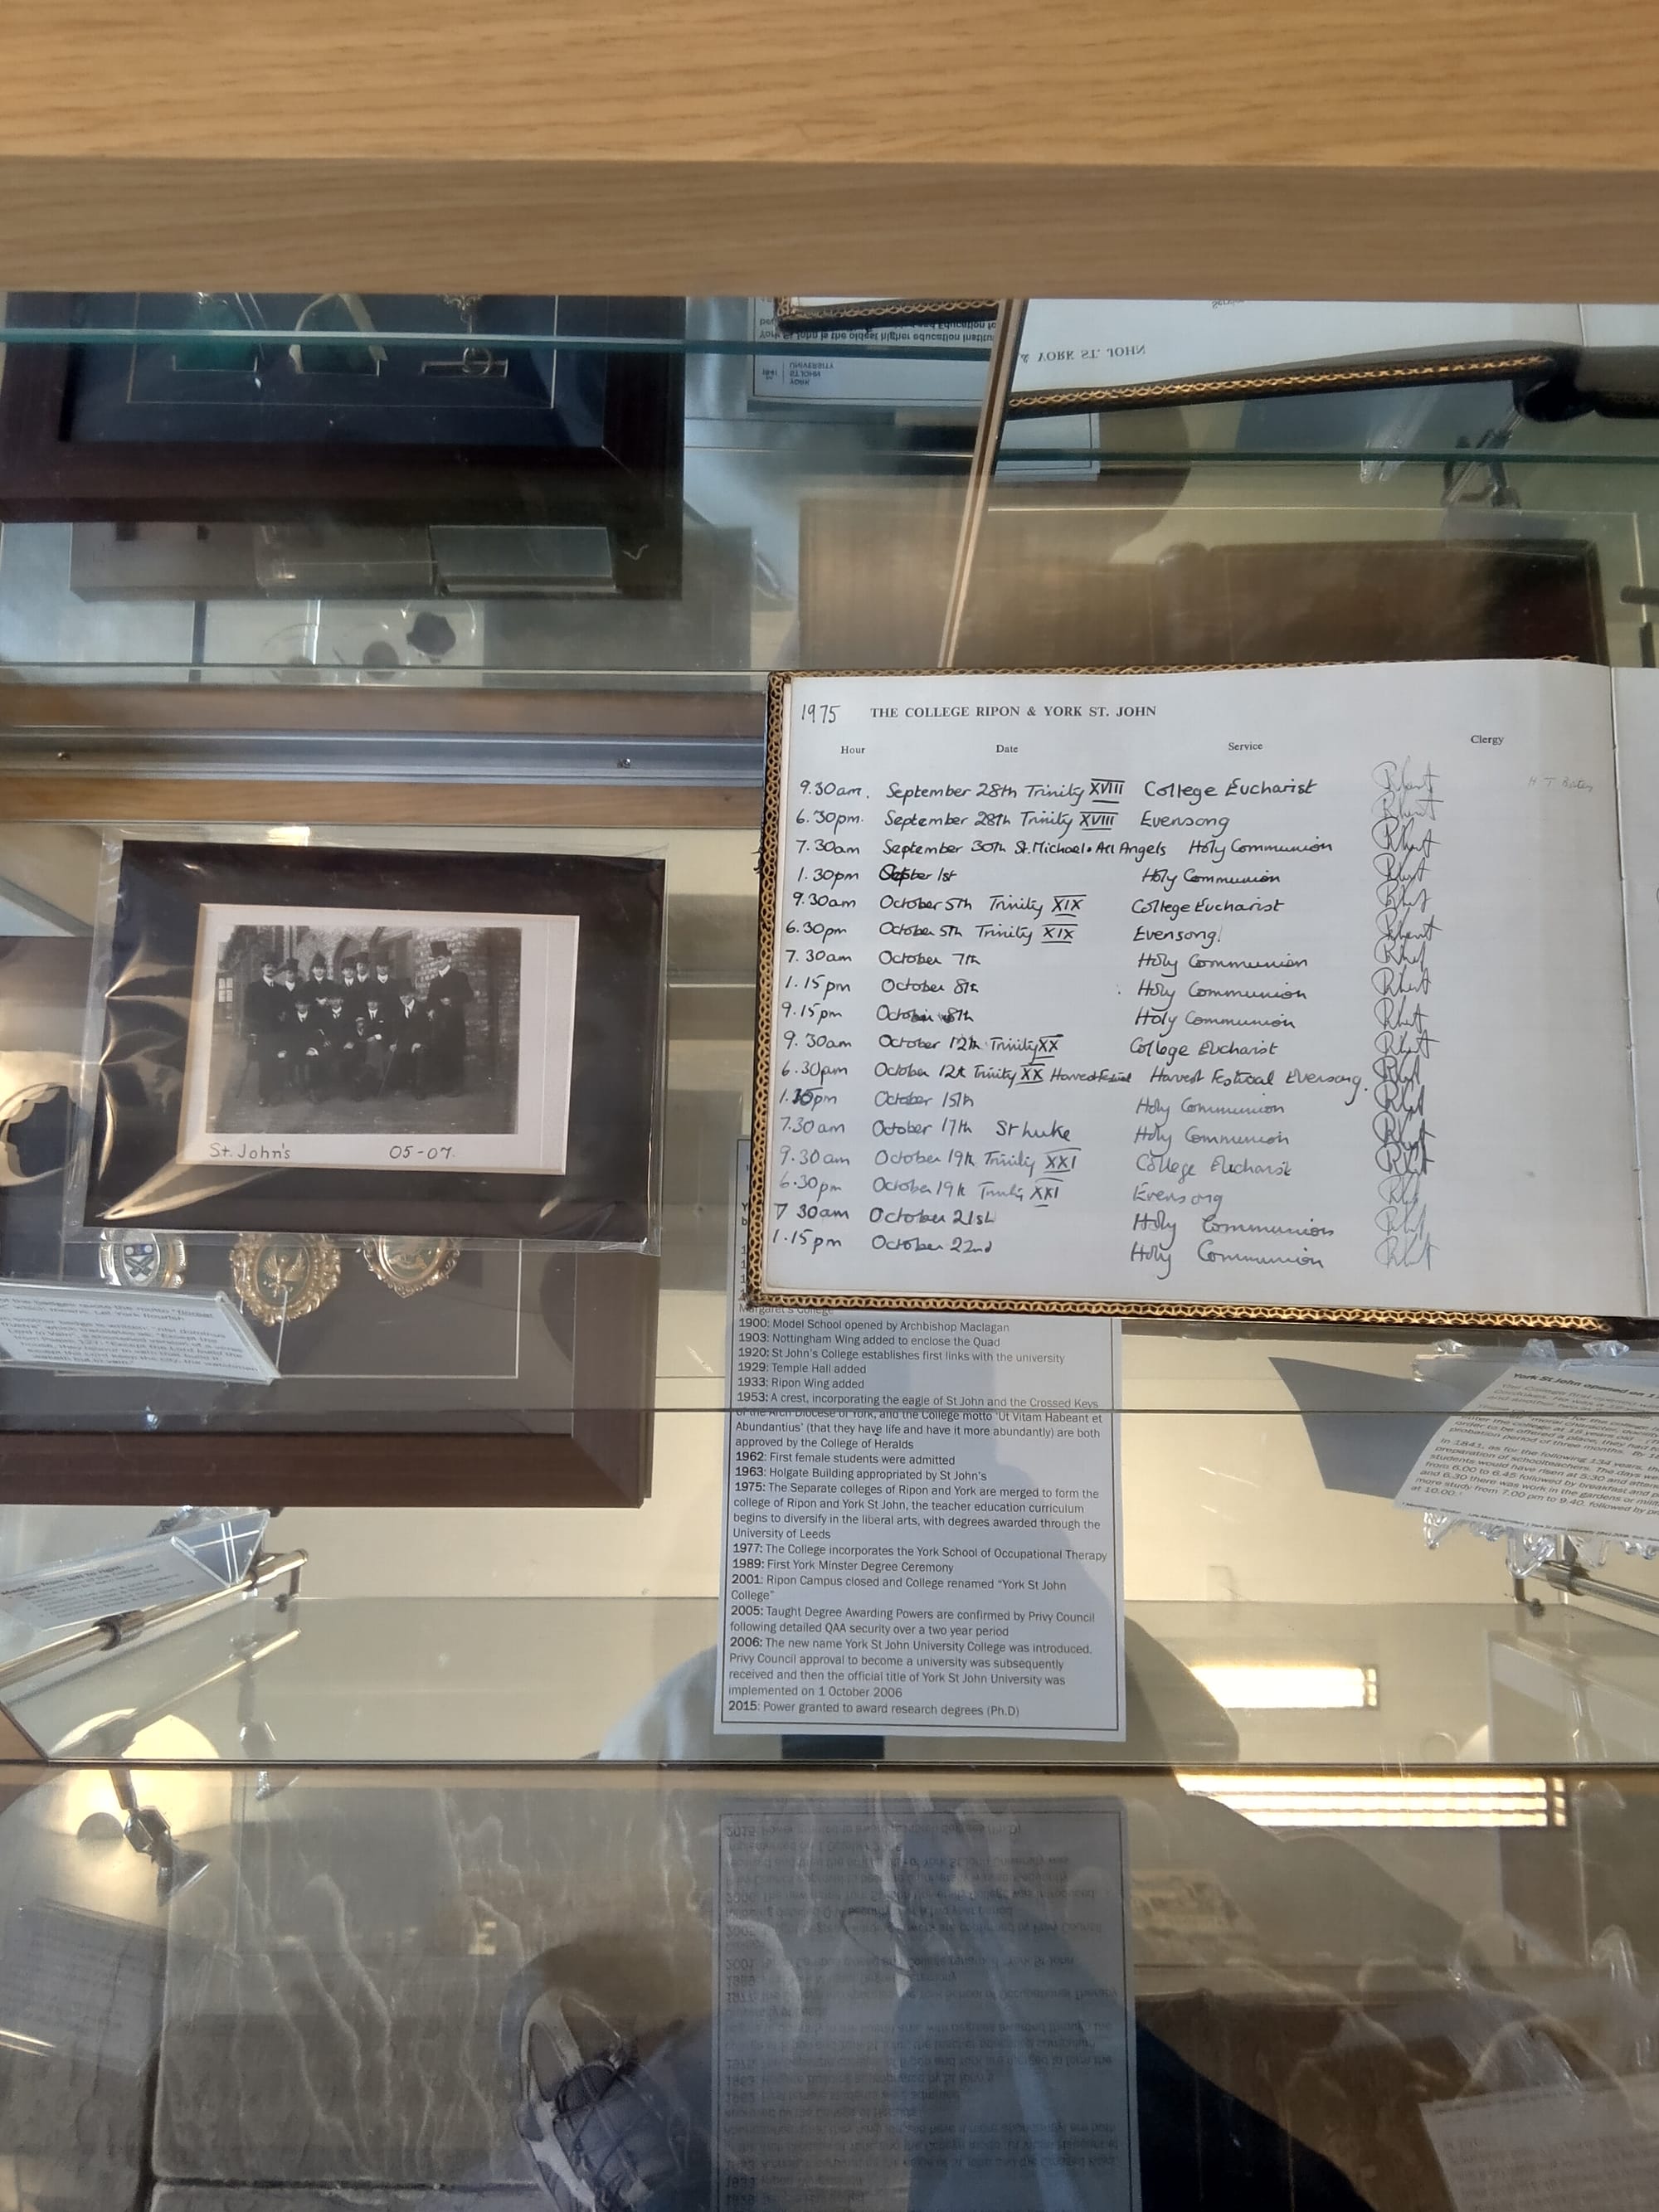 YORK
ST JOHN
UNIVERSITY
York St John is the oldest higher education institu
& YORK ST. JOHN
1975 THE COLLEGE RIPON & YORK ST. JOHN
Hour Date Service Clergy
9.30am. September 28th Trinity XVIII College Eucharist
6.30pm. September 28th Trinity XVIII Evensong
7.30am September 30th St. Michael & All Angels Holy Communion
1.30pm 1st Holy Communion
9.30am October 5th Trinity XIX College Eucharist
6.30pm October 5th Trinity XIX Evensong
7.30am October 7th Holy Communion
1.15pm October 8th Holy Communion
9.15pm October 8th Holy Communion
9.30am October 12th Trinity XX College Eucharist
6.30pm October 12th Trinity XX Harvest Festival Harvest Festival Evensong.
pm October 15th Holy Communion
7.30am October 17th St Luke Holy Communion
9.30am October 19th Trinity XXI College Eucharist
6.30pm October 19th Trinity XXI Evensong
7 30am October 21st Holy Communion
1.15pm October 22nd Holy Communion
St. John's 05-07.
Margaret's College
1900: Model School opened by Archbishop Maclagan
1903: Nottingham Wing added to enclose the Quad
1920: St John's College establishes first links with the university
1929: Temple Hall added
1933: Ripon Wing added
1953: A crest, incorporating the eagle of St John and the Crossed Keys
of the Arch Diocese of York, and the College motto 'Ut Vitam Habeant et
Abundantius' (that they have life and have it more abundantly) are both
approved by the College of Heralds
1962: First female students were admitted
1963: Holgate Building appropriated by St John's
1975: The Separate colleges of Ripon and York are merged to form the
college of Ripon and York St John, the teacher education curriculum
begins to diversify in the liberal arts, with degrees awarded through the
University of Leeds
1977: The College incorporates the York School of Occupational Therapy
1989: First York Minster Degree Ceremony
2001: Ripon Campus closed and College renamed "York St John
College"
2005: Taught Degree Awarding Powers are confirmed by Privy Council
following detailed QAA security over a two year period
2006: The new name York St John University College was introduced.
Privy Council approval to become a university was subsequently
received and then the official title of York St John University was
implemented on 1 October 2006
2015: Power granted to award research degrees (Ph.D)
York St John opened on 1
In 1841, as for the following 134 years, the
preparation of schoolteachers. The days we
students would have risen at 5:30 and atten
from 6.00 to 6.45 followed by breakfast and p
and 6.30 there was work in the gardens or mili
more study from 7.00 pm to 9.40, followed by pr
at 10.00.